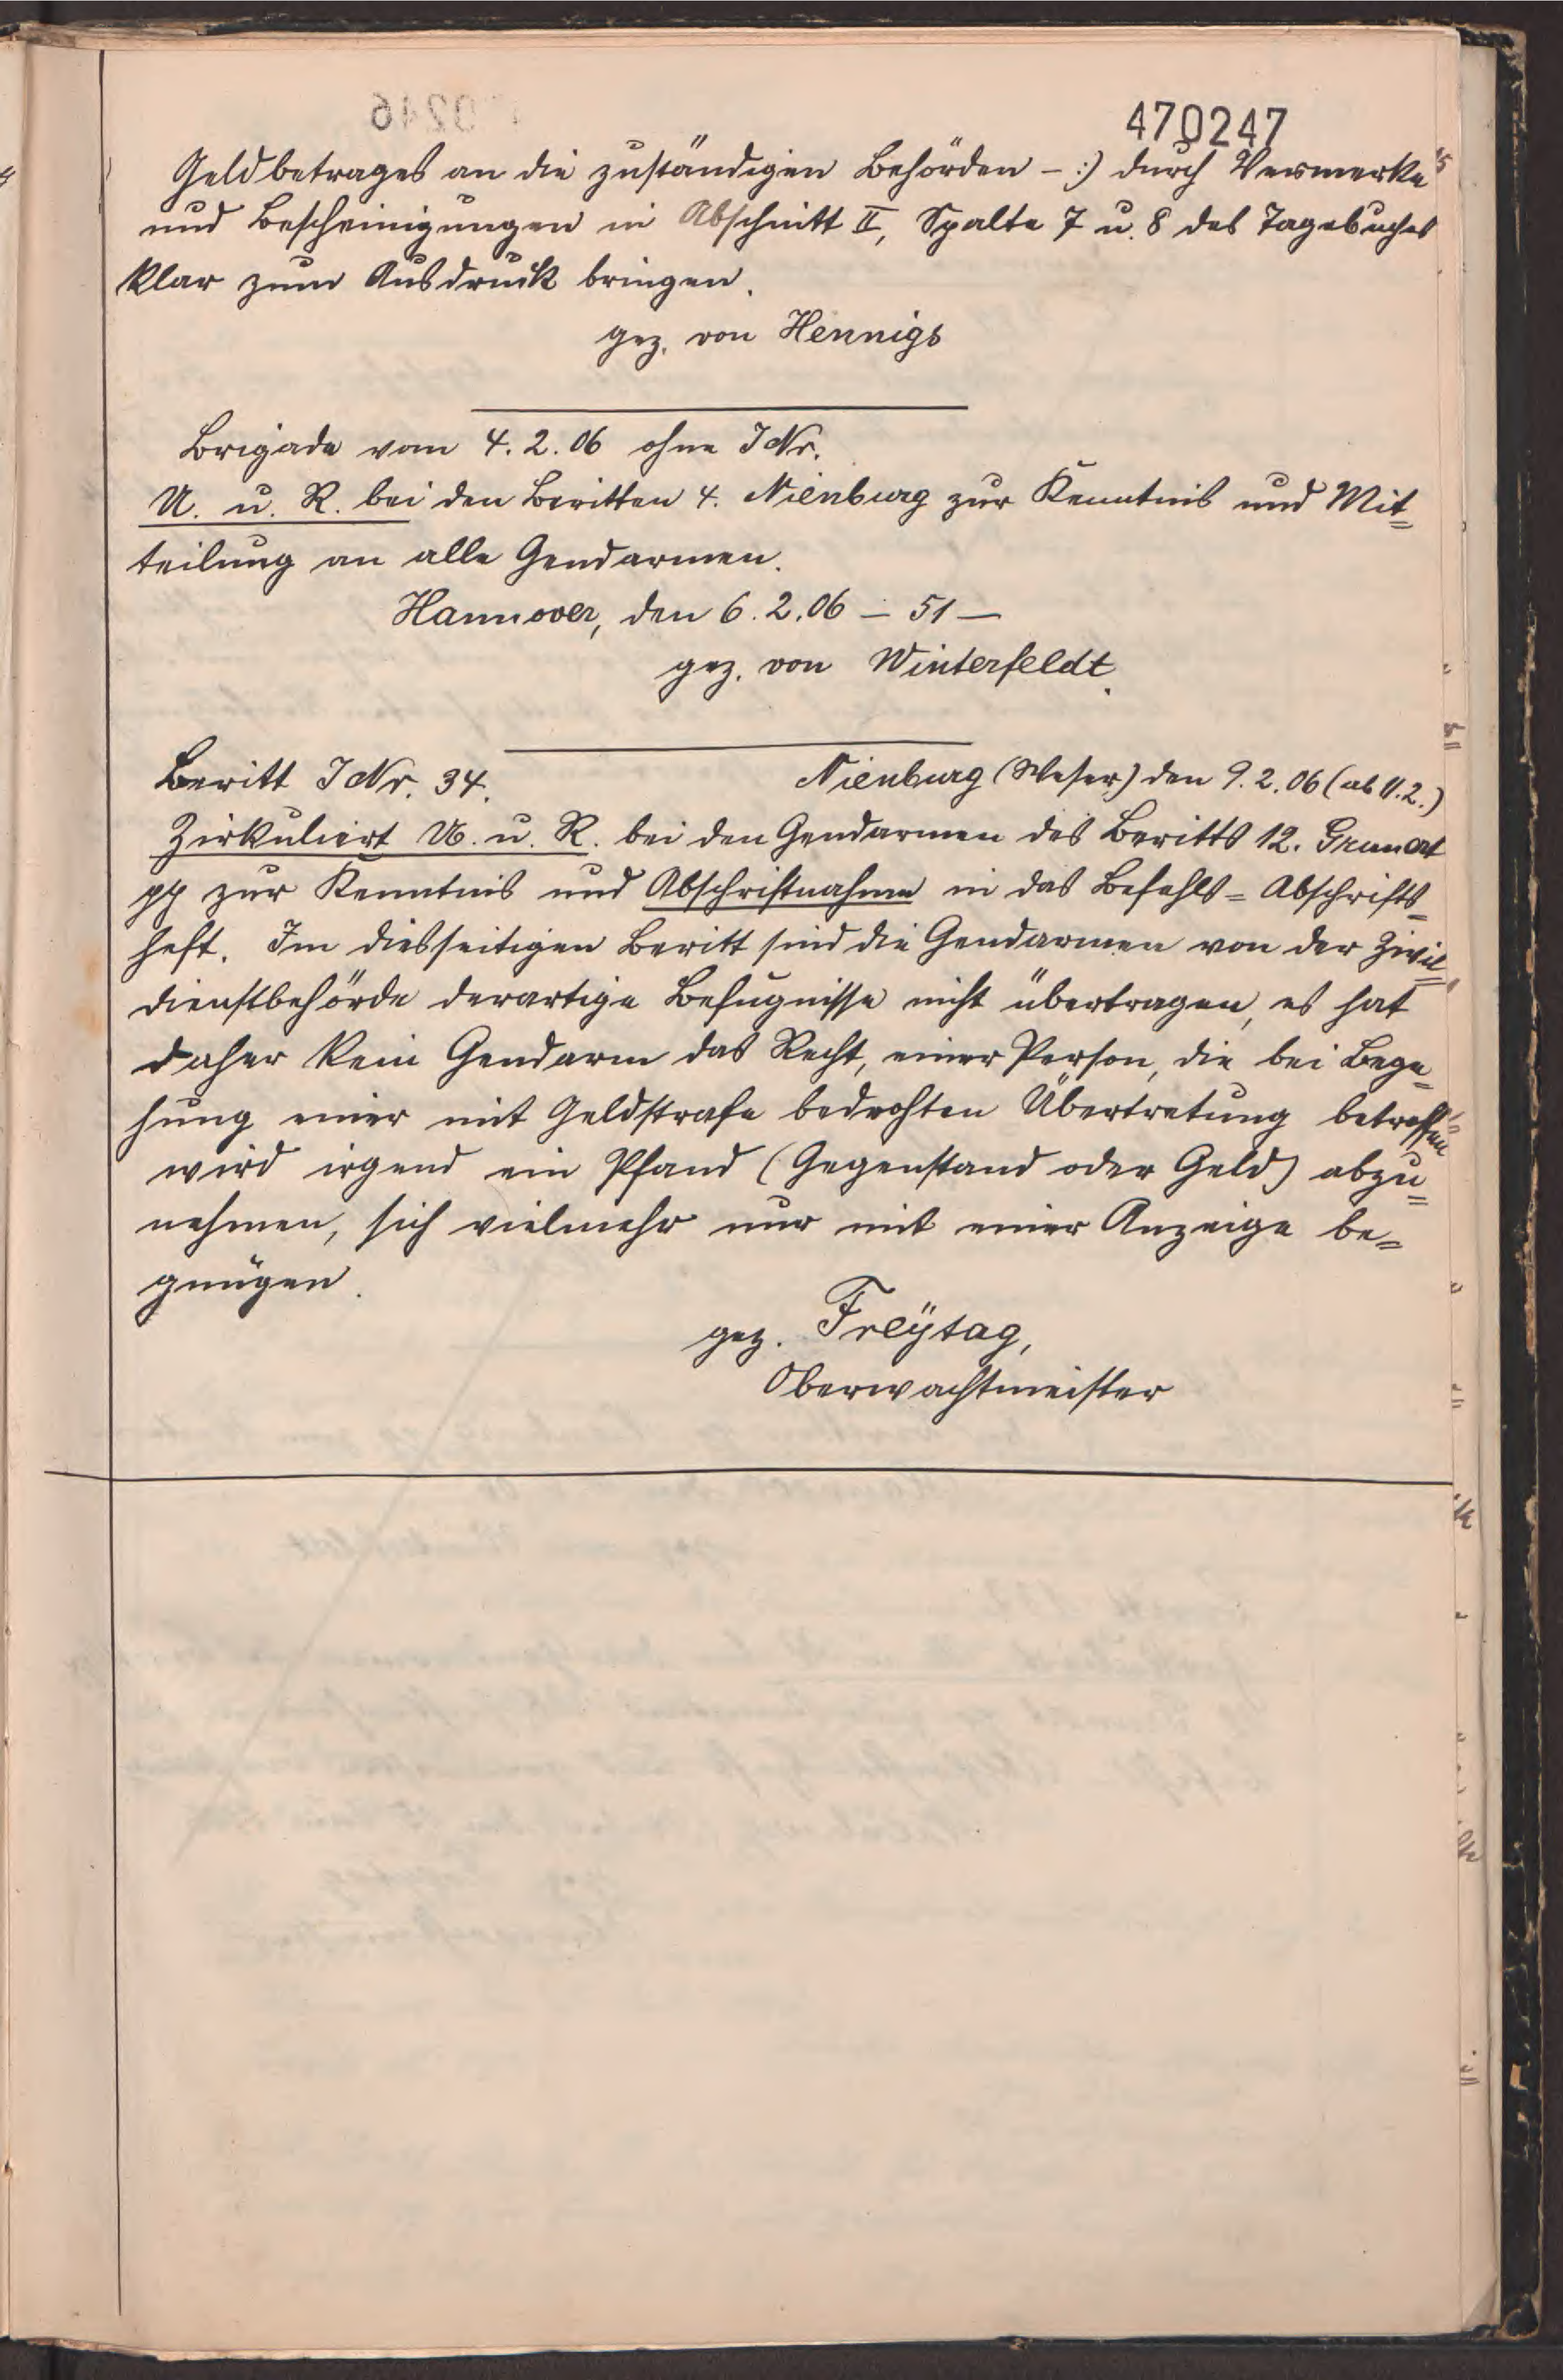 470247
Geldbetrages an die zuständigen Behörden -:) durch Vermerke
und Bescheinigungen in Abschnitt II, Spalte 7 u. 8 des Tagebuches
klar zum Ausdruck bringen.
gez. von Hennigs
Brigade vom 4.2.06 ohne J Nr.
U. u. R. bei den Beritten 4. Nienburg zur Kenntnis und Mit=
teilung an alle Gendarmen.
Hannover, den 6.2.06 – 51 –
gez. von Winterfeldt.
Beritt J Nr. 34.
Nienburg (Weser) den 9.2.06 (ab 11.2.)
Zirkuliert U. u. R. bei den Gendarmen des Beritts 12.
pp zur Kenntnis und Abschriftnahme in das Befehls=Abschrifts=
heft. Im diesseitigen Beritt sind die Gendarmen von der Zivil=
dienstbehörde derartige Befugnisse nicht übertragen, es hat
daher kein Gendarm das Recht, einer Person, die bei Bege=
hung einer mit Geldstrafe bedrohten Übertretung betroffen
wird irgend ein Pfand (Gegenstand oder Geld) abzu=
nehmen, sich vielmehr nur mit einer Anzeige be=
gnügen.
gez. Freÿtag,
Oberwachtmeister